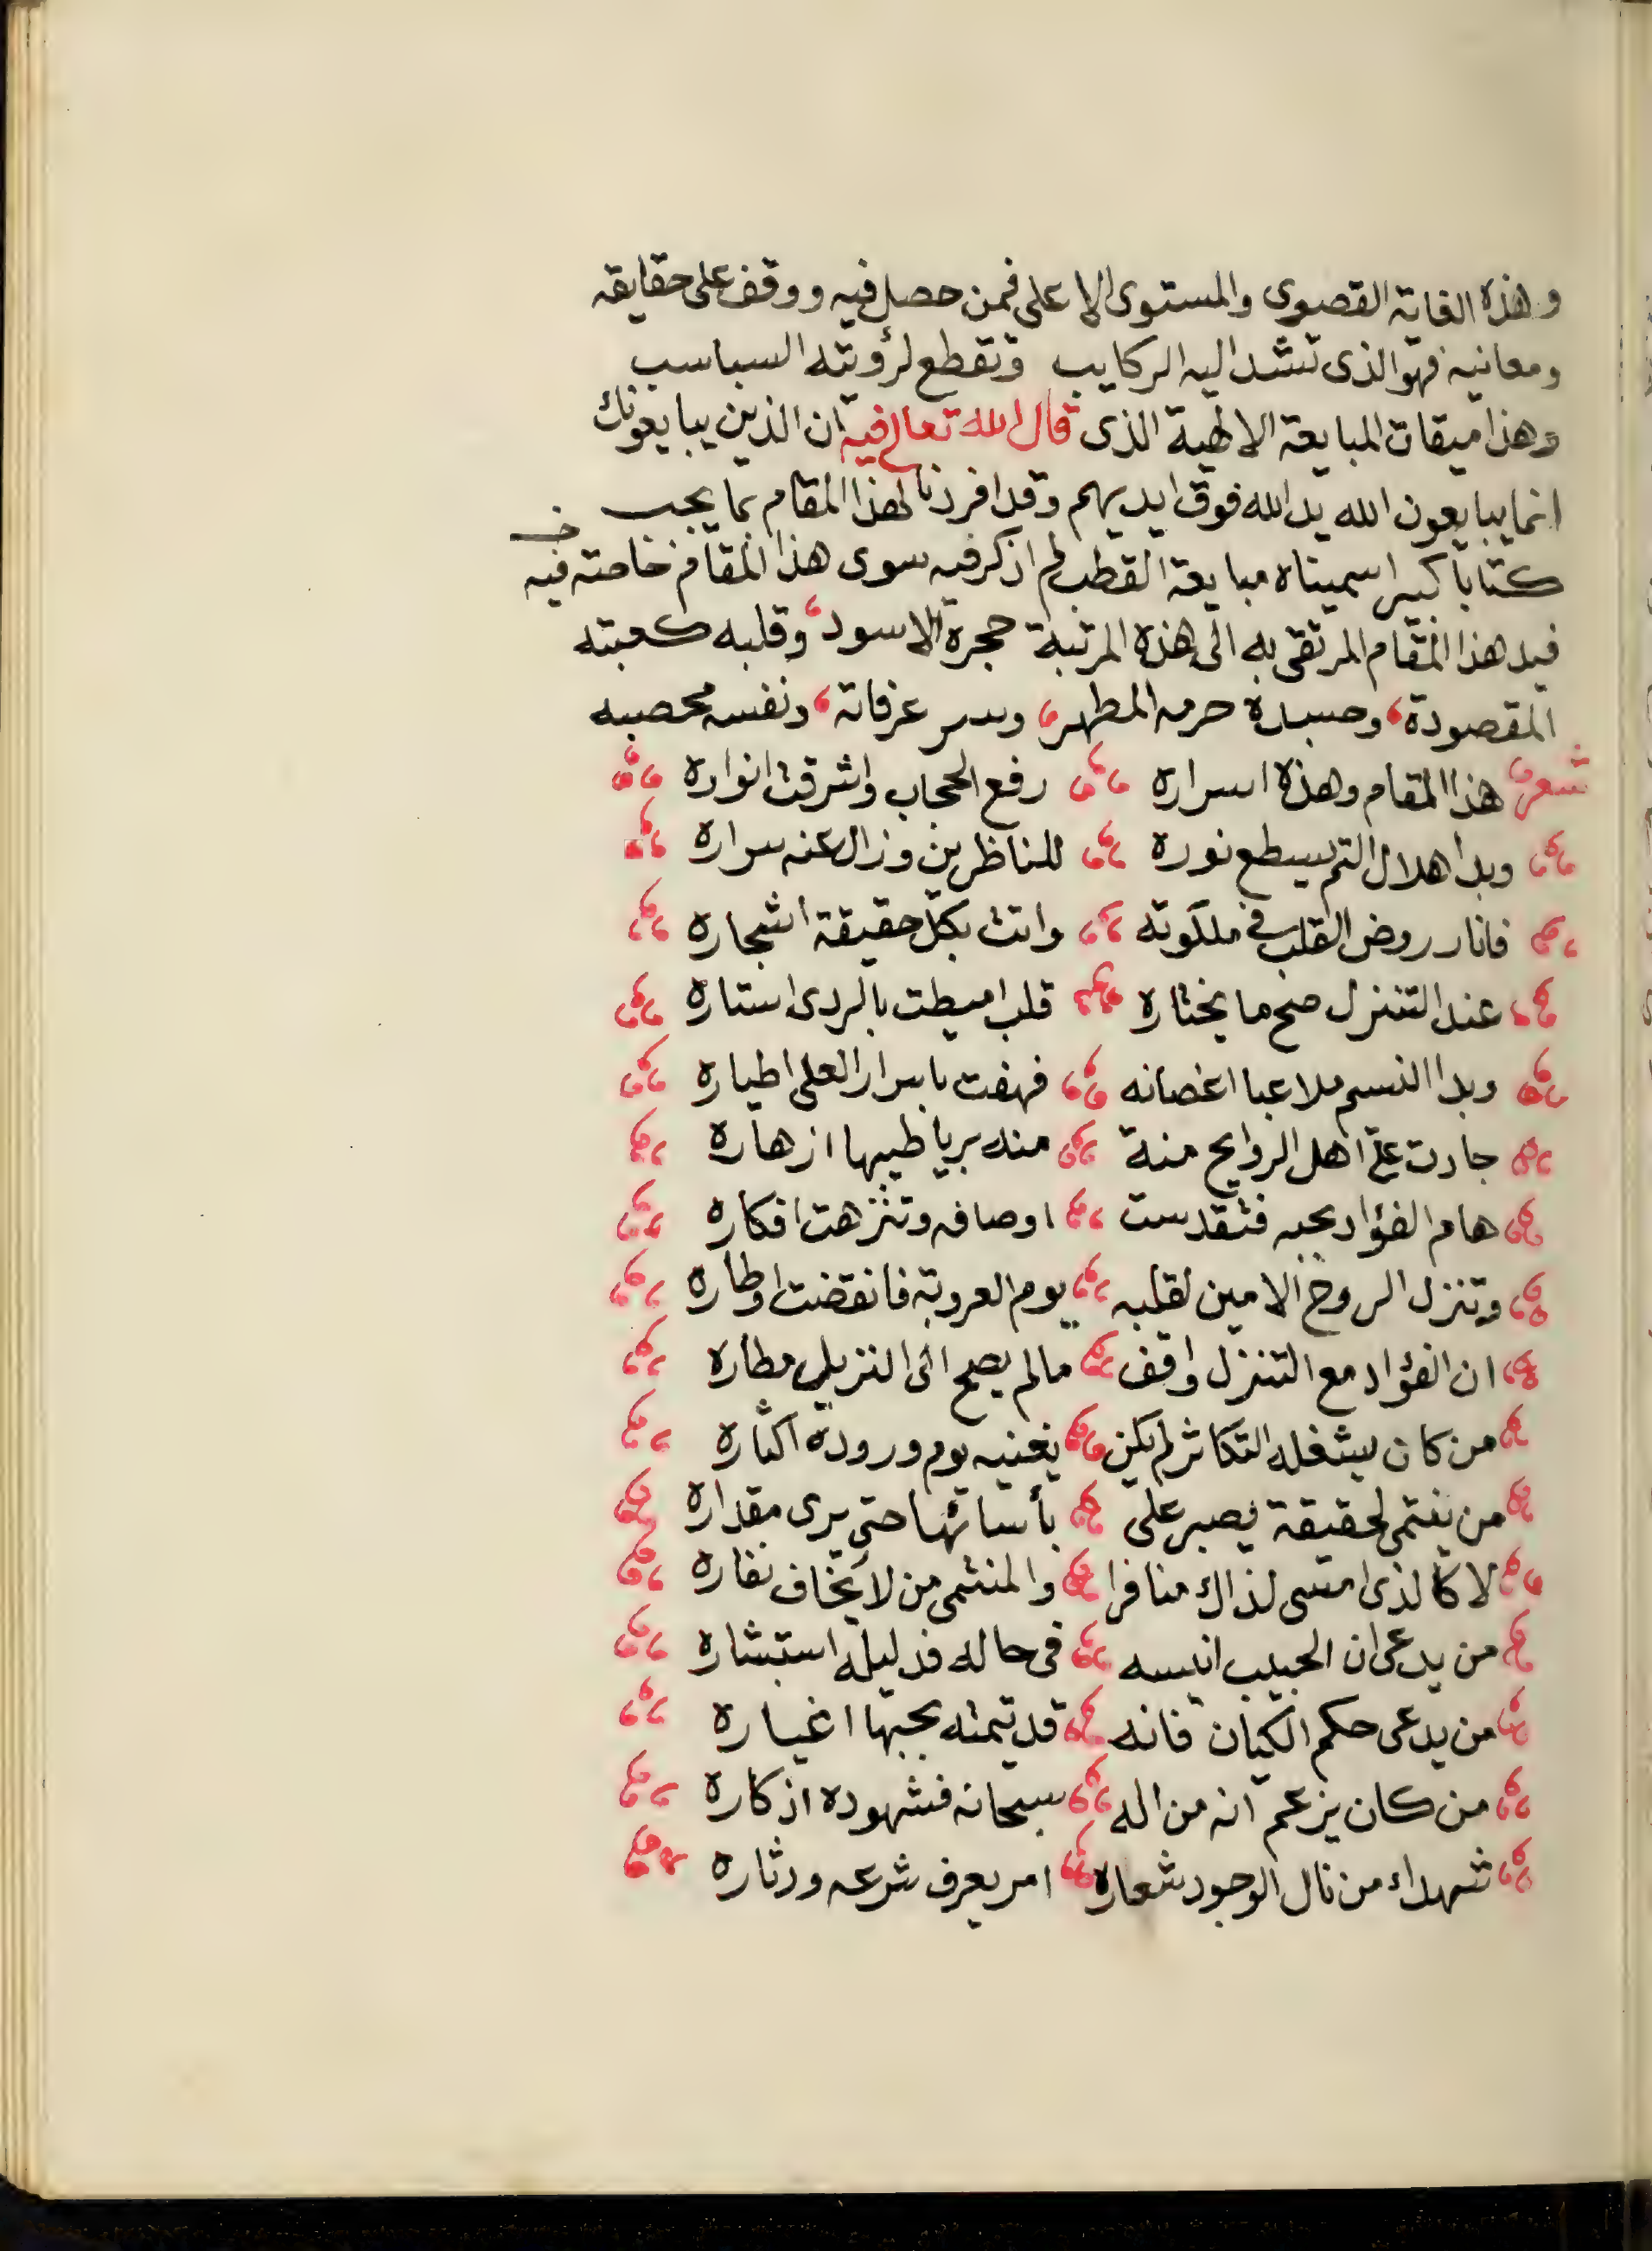 وهذه الغاية القصوى والمستوى الاعلى فمن حصل فيه ووقف على حقايقه
ومعانيه فهو الذى تشد اليه الركايب وتقطع لرؤيته السباسب
وهذا ميقات المبايعة الالهية الذى قال الله تعالى فيه ان الذين يبايعونك
انما يبايعون الله يد الله فوق ايديهم وقد افردنا لهذا المقام بما يجب
كتابا كبيرا سميناه مبايعة القطب لم اذكر فيه سوى هذا المقام خاصته فيه
فيد هذا المقام المرتقى به الى هذه المرتبة حجرة الاسود وقلبه كعبته
المقصودة وجسده حرمه المطهر وسر عرفاته ونفسه محصبه
شعر هذا المقام وهذه اسراره رفع الحجاب واشرقت انواره
وبدا هلال التم يسطع نوره للناظرين وزال عنه سراره
فانار روض القلب فى ملكوته واتت بكل حقيقة اشجاره
عند التنزل صح ما يختاره قلب اميطت بالردى استاره
وبدا النسيم ملاعبا اغصانه فهفت باسرار العلى اطياره
جادت على اهل الروايح منة منه بريا طيبها ازهاره
هام الفؤاد بحبه فتقدست اوصافه وتنزهت افكاره
وتنزل الروح الامين لقلبه يوم العروبة فانقضت اوطاره
ان الفؤاد مع التنزل واقف مالم يصح الى النزيل مطاره
من كان يشغله التكاثر لم يكن يغنيه يوم وروده اكثاره
من ينتمى لحقيقة يصبر على بأسائها حتى يرى مقداره
لا كالذى امسى لذاك منافرا والمنتمى من لا يخاف نفاره
من يدعى ان الحبيب انيسه فى حاله فدليله استبشاره
من يدعى حكم الكيان فانه قد تيمته بحبها اغياره
من كان يزعم انه من اله سبحانه فشهوده اذكاره
شهداء من نال الوجود شعاره امر يعرف شرعه ودثاره